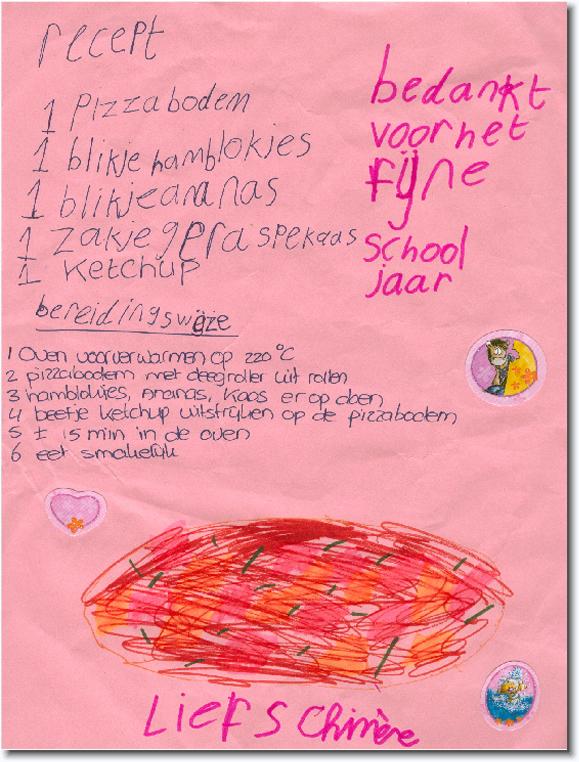 recept
1 Pizzabodem
1 blikje hamblokjes
1 blikjeananas
1 zakje geraspekaas
1 Ketchup
bedankt
voor het
fijne
school
jaar
bereidingswijze
1 Oven voorverwarmen op 220°C
2 pizzabodem met deegroller uit rollen
3 hamblokjes, Ananas, Kaas er op doen
4 beetje ketchup uitstrijken op de pizzabodem
5 ± 15 min in de oven
6 eet smakelijk
Liefs